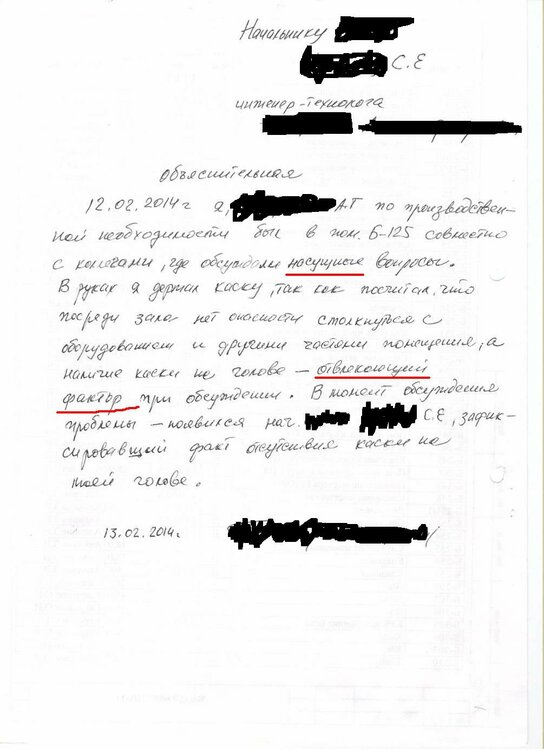 Начальнику
С.Е
инженер-технолога
объяснительная
12.02.2014г я, А.Г по производствен-
ной необходимости был в пом. Б-125 совместно
с колегами, где обсуждали насущные вопросы.
В руках я держал каску, так как посчитал, что
посреди зала нет опасности столкнуться с
оборудованием и другими частями помещения, а
наличие каски на голове – отвлекающий
фактор при обсуждении. В момент обсуждения
проблемы – появился нач. С.Е, зафик-
сировавщий факт отсутствия каски на
моей голове.
13.02.2014г